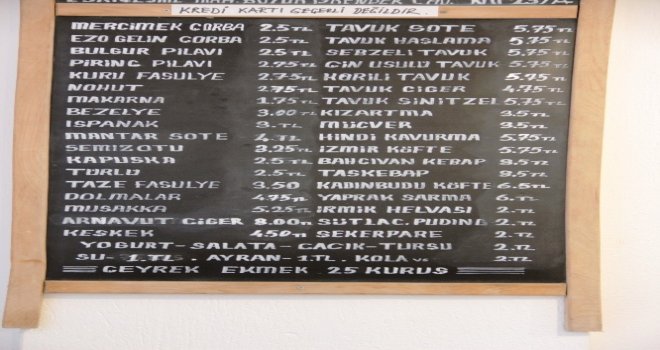 KREDİ KARTI GEÇERLİ DEĞİLDİR.
MERCİMEK ÇORBA 2.5 TL
EZO GELİN ÇORBA 2.5 TL
BULGUR PİLAVI 2.5 TL
PİRİNÇ PİLAVI 2.75 TL
KURU FASULYE 2.75 TL
NOHUT 2.75 TL
MAKARNA 1.75 TL
BEZELYE 3.00 TL
ISPANAK 3. TL
MANTAR SOTE 4 TL
SEMİZOTU 3.25 TL
KAPUSKA 2.5 TL
TÜRLÜ 2.5 TL
TAZE FASULYE 3.50
DOLMALAR 4.75 TL
MUSAKKA 5.25 TL
ARNAVUT CİĞER 8.00 TL
KEŞKEK 4.50 TL
TAVUK SOTE 5.75 TL
TAVUK HAŞLAMA 5.75 TL
SEBZELİ TAVUK 5.75 TL
ÇİN USULÜ TAVUK 5.75 TL
KÖRİLİ TAVUK 5.75 TL
TAVUK CİĞER 4.75 TL
TAVUK ŞİNİTZEL 5.75 TL
KIZARTMA 3.5 TL
MÜCVER 3.5 TL
HİNDİ KAVURMA 5.75 TL
İZMİR KÖFTE 5.75 TL
BAHÇIVAN KEBAP 8.5 TL
TASKEBAP 8.5 TL
KADINBUDU KÖFTE 6.5 TL
YAPRAK SARMA 6. TL
İRMİK HELVASI 2. TL
SÜTLAÇ. PUDİNG 2. TL
ŞEKERPARE 2. TL
YOĞURT - SALATA - CACIK - TURŞU 2. TL
SU - 1. TL . AYRAN - 1. TL . KOLA vs 2. TL
ÇEYREK EKMEK 25 KURUŞ